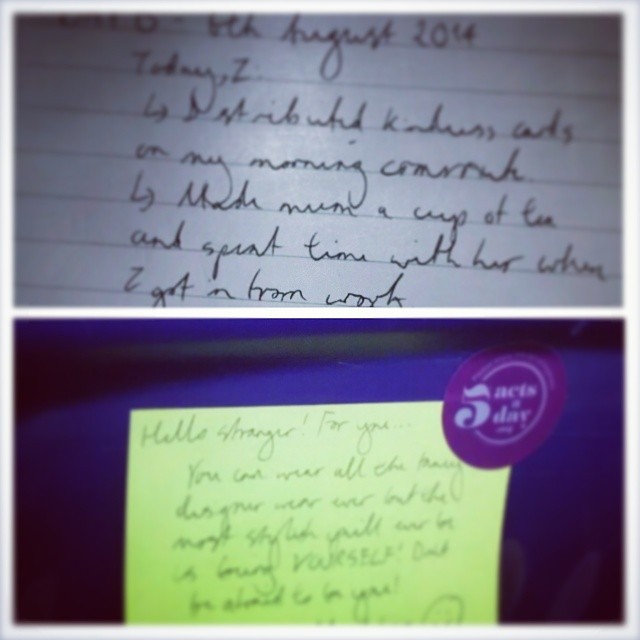 DAY 6 - 6th August 2014
Today, I:
↳ Distributed kindness cards
on my morning commute.
↳ Made mum a cup of tea
and spent time with her when
I got in from work
5 acts
a
day
.org
Hello stranger! For you...
You can wear all the fancy
designer wear ever but the
most stylish you'll ever be
is being YOURSELF! Don't
be afraid to be you!